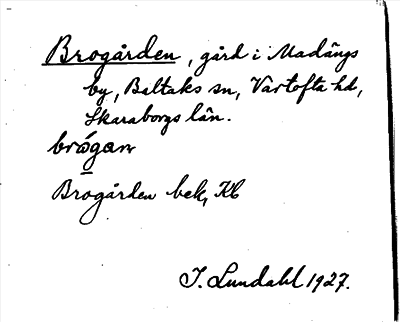 Brogården, gård i Madängs
by, Baltaks sn, Vartofta hd,
Skaraborgs län.
brógaɴ
Brogården bek, Kb
I. Lundahl 1927.